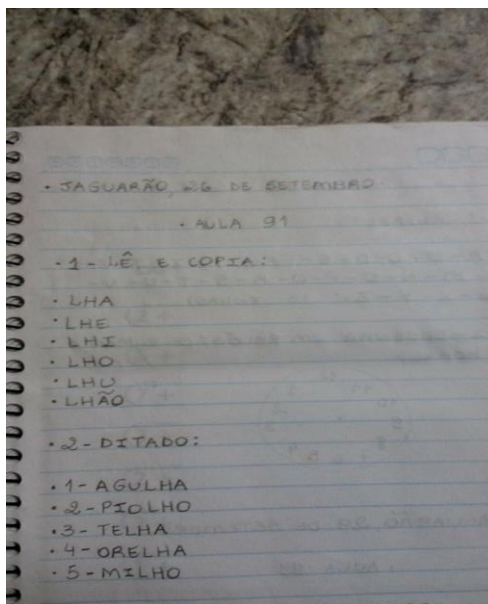 · JAGUARÃO, 26 DE SETEMBRO.
· AULA 91
· 1 - LÊ E COPIA:
· LHA
· LHE
· LHI
· LHO
· LHU
· LHÃO
· 2 - DITADO:
· 1 - AGULHA
· 2 - PIOLHO
· 3 - TELHA
· 4 - ORELHA
· 5 - MILHO